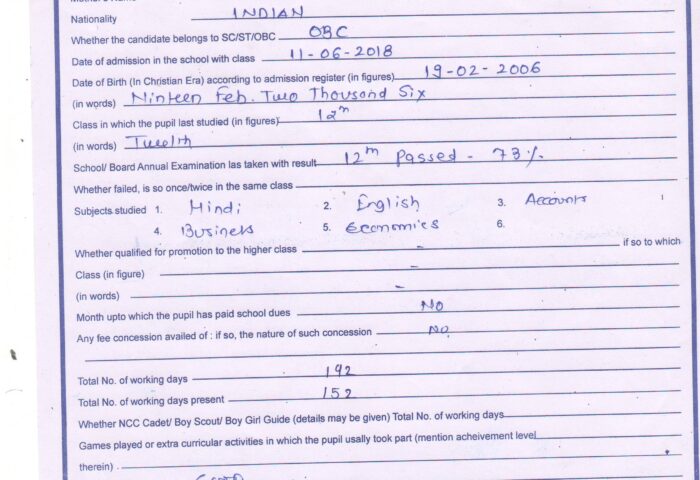 Nationality INDIAN
Whether the candidate belongs to SC/ST/OBC OBC
Date of admission in the school with class 11-06-2018
Date of Birth (In Christian Era) according to admission register (in figures) 19-02-2006
(in words) Ninteen Feb. Two Thousand Six
Class in which the pupil last studied (in figures) 12th
(in words) Twelth
School/ Board Annual Examination las taken with result 12th Passed - 73%
Whether failed, is so once/twice in the same class
Subjects studied 1. Hindi 2. English 3. Accounts
4. Business 5. Economics 6.
Whether qualified for promotion to the higher class - if so to which
Class (in figure) -
(in words) -
Month upto which the pupil has paid school dues NO
Any fee concession availed of : if so, the nature of such concession NO
Total No. of working days 192
Total No. of working days present 152
Whether NCC Cadet/ Boy Scout/ Boy Girl Guide (details may be given) Total No. of working days
Games played or extra curricular activities in which the pupil usally took part (mention acheivement level
therein)